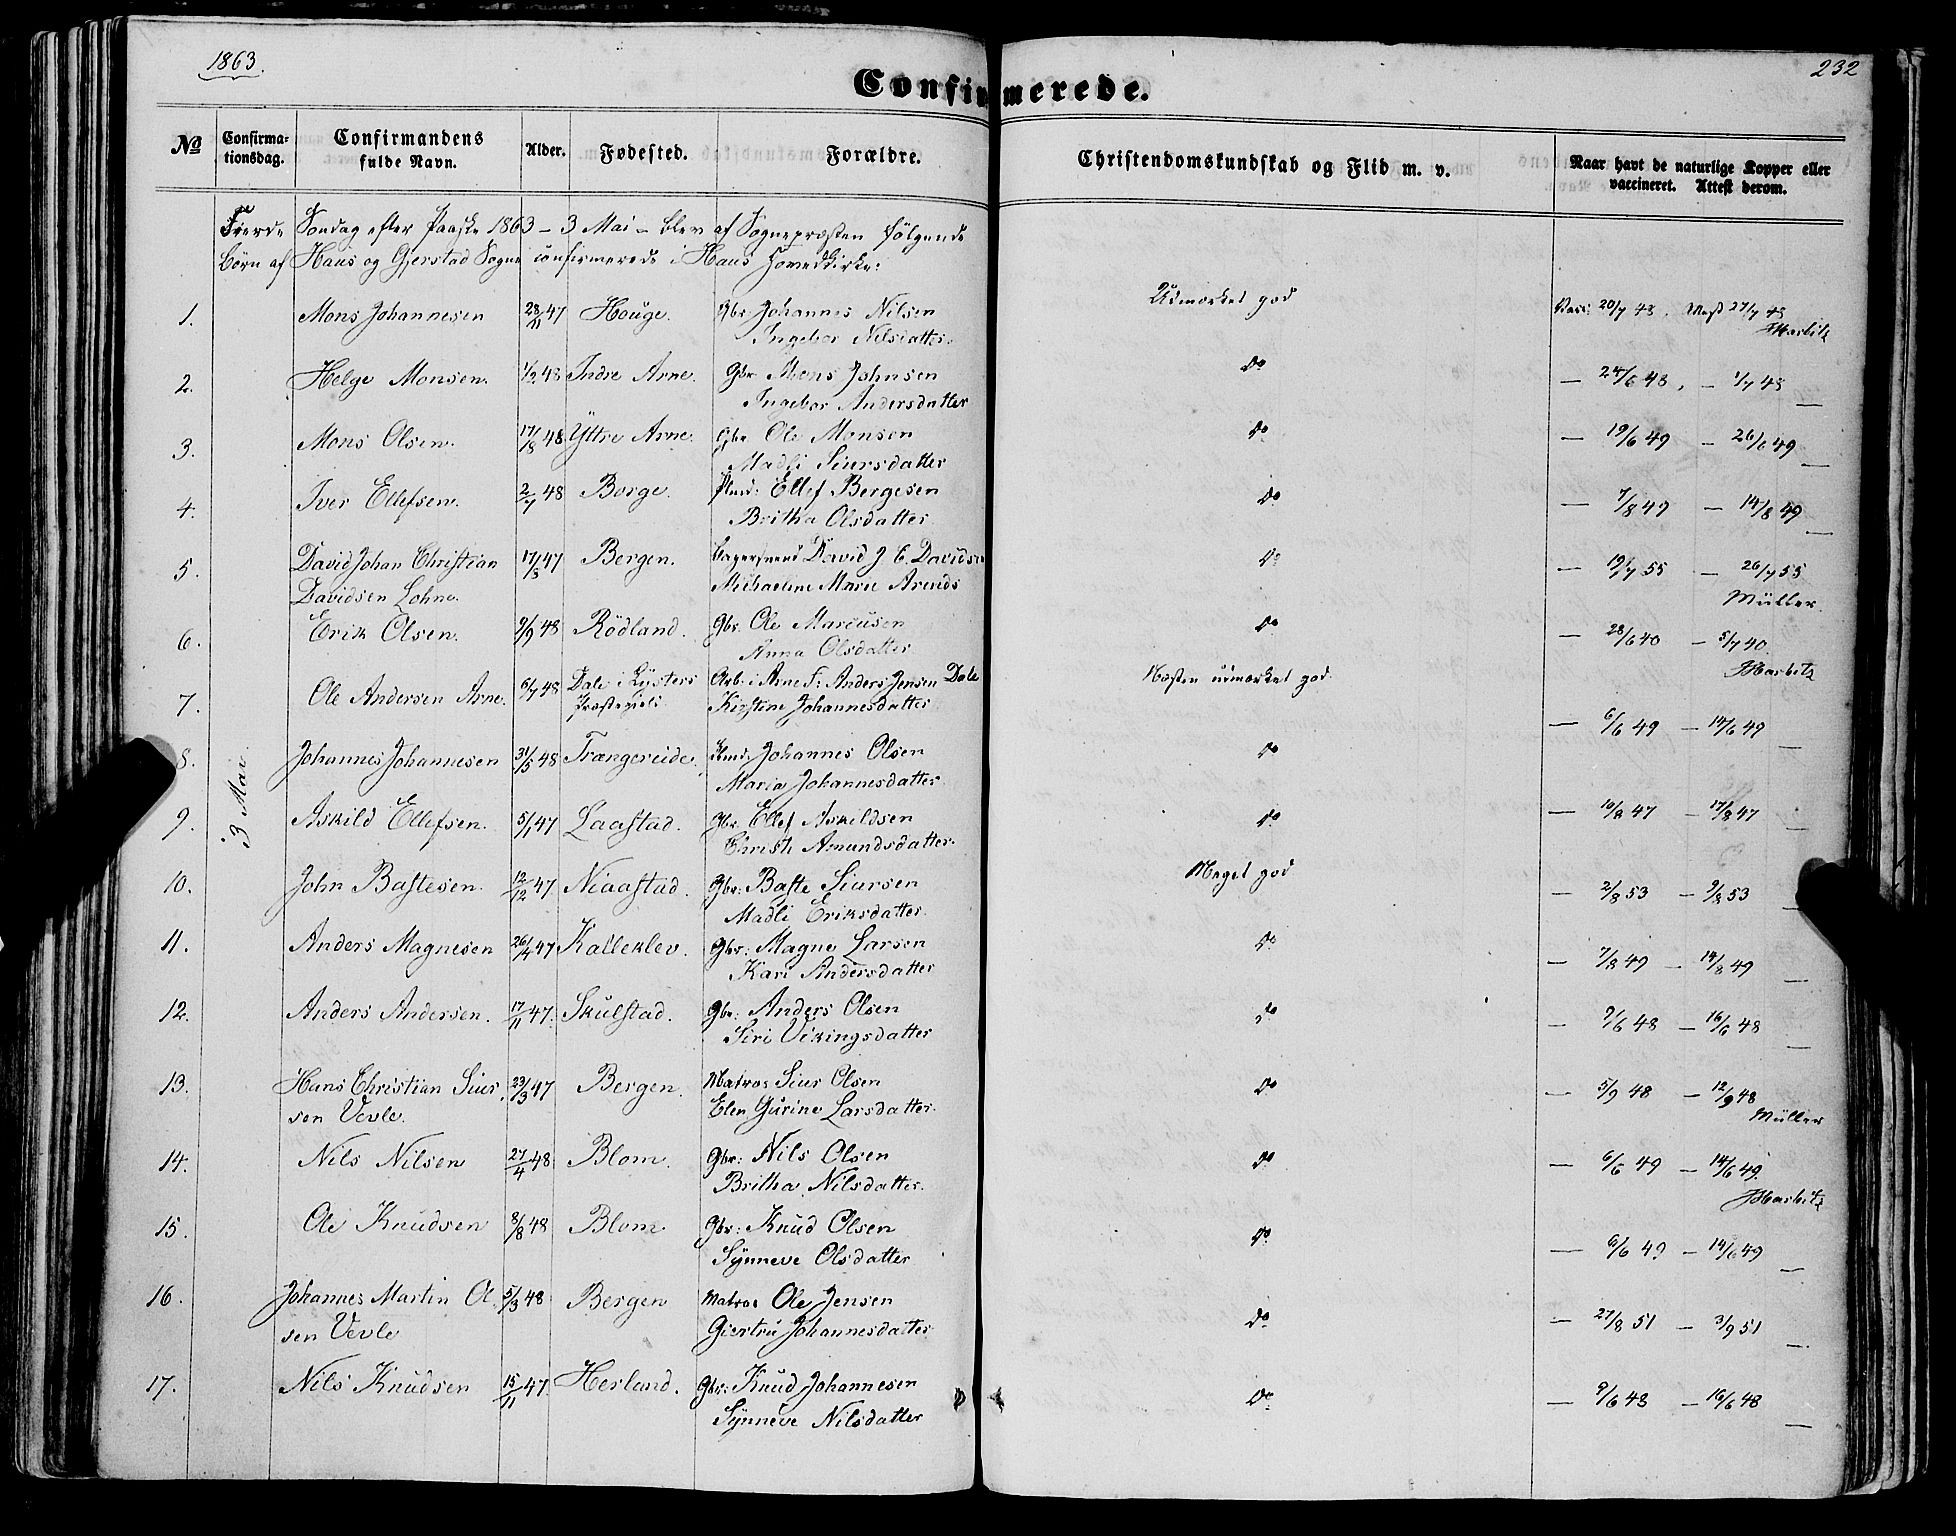 1863.
232
Confirmerede.
No Confirmationsdag. Confirmandens fulde Navn. Alder. Fødested. Forældre. Christendomskundskab og Flid m. v. Naar havt de naturlige Kopper eller vaccineret. Attest derom.
Fierde Søndag efter Paaske 1863 - 3 Mai - blev af Sognepræsten følgende
Børn af Haus og Gjerstad Sogne confirmerede i Haus Hovedkirke:
3 Mai
1. Mons Johannesen 28/11 47 Houge. Gbr Johannes Nilsen Udmærket god Vacc: 20/7 48. Attest 27/7 48
Ingebor Nilsdatter. Harbitz
2. Helge Monsen. 1/2 48 Indre Arne. Gbr. Mons Johnsen Do — 24/6 48. — 1/7 48
Ingebor Andersdatter —
3. Mons Olsen. 17/8 48 Yttre Arne. Gbr Ole Monsen Do — 19/6 49 — 26/6 49
Madli Siursdatter —
4. Iver Ellefsen. 2/7 48 Borge. Pmd: Ellef Bergesen Do — 7/8 49 — 14/8 49
Britha Olsdatter —
5. David Johan Christian 17/3 47 Bergen. Bagersvend David J C. Davidsen Do — 19/7 55 — 26/7 55
Davidsen Lohne. Michaeline Marie Arends Müller.
6. Erik Olsen. 9/9 48 Rödland. Gbr. Ole Marcusen Do — 28/6 40 — 5/7 40.
Anna Olsdatter Harbitz
7. Ole Andersen Arne. 6/7 48 Dale i Lysters Arb: i Arne F: Anders Jensen Dale Næsten udmærket god. — 6/6 49 — 14/6 49
Præstegield Kirstine Johannesdatter —
8. Johannes Johannesen 31/5 48 Trængereide. Pmd: Johannes Olsen Do
Maria Johannesdatter
9. Askild Ellefsen. 5/1 47 Laastad. Gbr. Ellef Askildsen Do — 10/8 47 — 17/8 47
Christi Amundsdatter. —
10. John Bastesen. 12/12 47 Niaastad. Gbr: Baste Siursen Meget god — 2/8 53 — 9/8 53
Madli Eriksdatter. —
11. Anders Magnesen 26/4 47 Kalleklev. Gbr: Magne Larsen Do — 7/8 49 — 14/8 49
Kari Andersdatter —
12. Anders Andersen. 17/11 47. Skulstad. Gbr: Anders Olsen Do — 9/6 48 — 16/6 48
Siri Vikingsdatter —
13. Hans Christian Siur 23/3 47 Bergen. Matros Siur Olsen Do — 5/9 48 — 12/9 48
sen Vevle. Elen Gurine Larsdatter. Müller
14. Nils Nilsen 27/4 48 Blom. Gbr: Nils Olsen Do — 6/6 49 — 14/6 49.
Britha Nilsdatter. Harbitz
15. Ole Knudsen 8/8 48 Blom. Gbr: Knud Olsen Do — 6/6 49 — 14/6 49
Synneve Olsdatter —
16. Johannes Martin Ol. 5/3 48 Bergen Matros Ole Jensen Do — 27/8 51 — 3/9 51
sen Vevle Giertru Johannesdatter —
17. Nils Knudsen 15/11 47. Herland. Gbr: Knud Johannesen Do — 9/6 48 — 16/6 48
Synneve Nilsdatter —